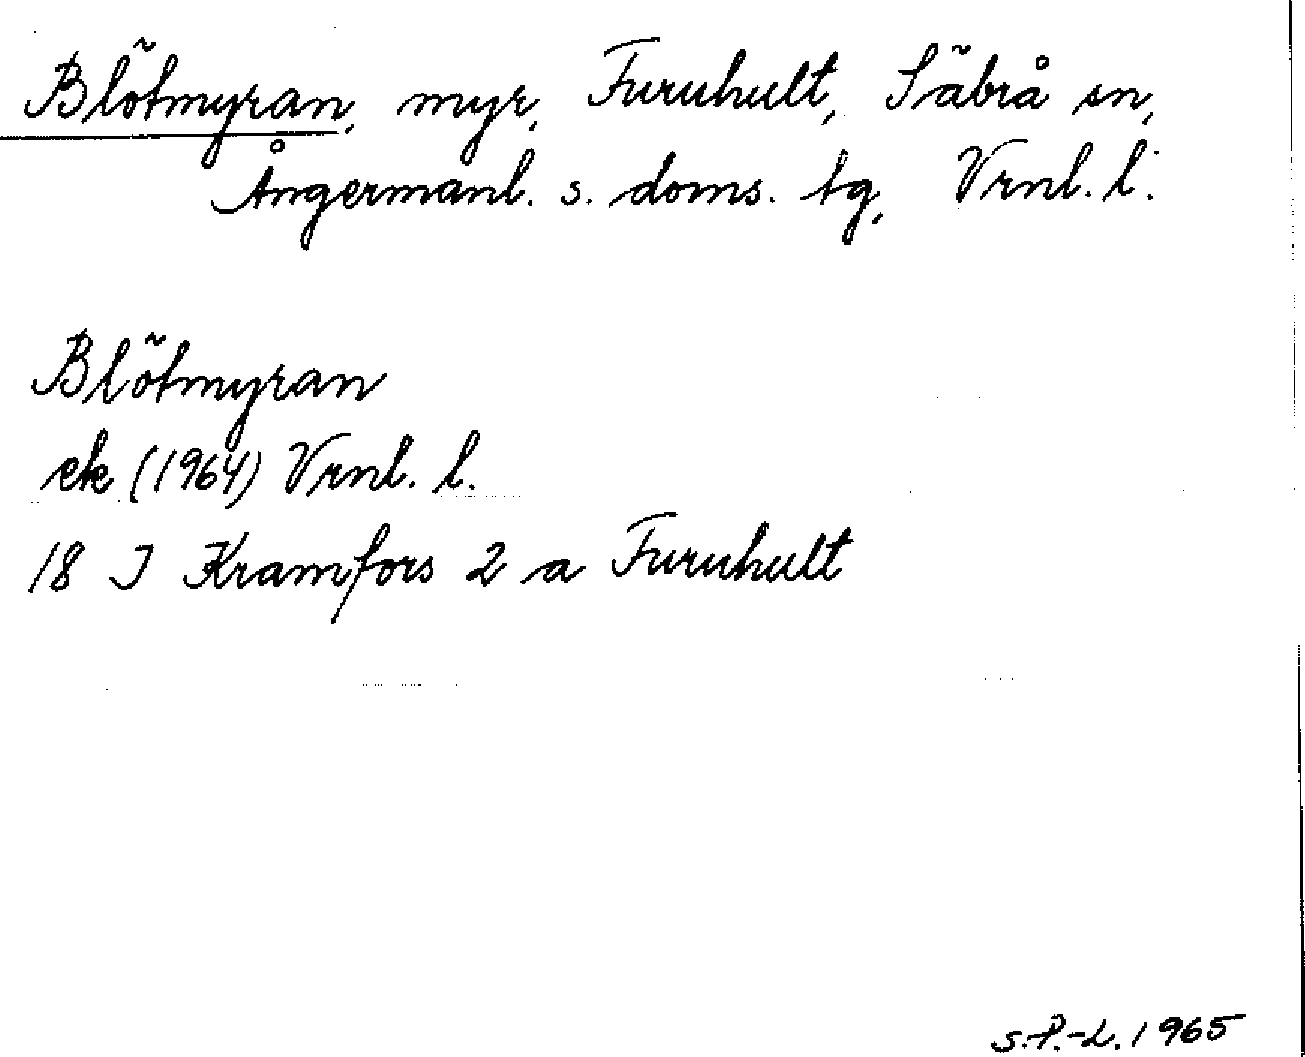 Blötmyran, myr, Furuhult, Säbrå sn,
Ångermanl. s. doms. tg, Vrnl. l.
Blötmyran
ek (1964) Vrnl. l.
18 I Kramfors 2 a Furuhult
S.P.-L. 1965